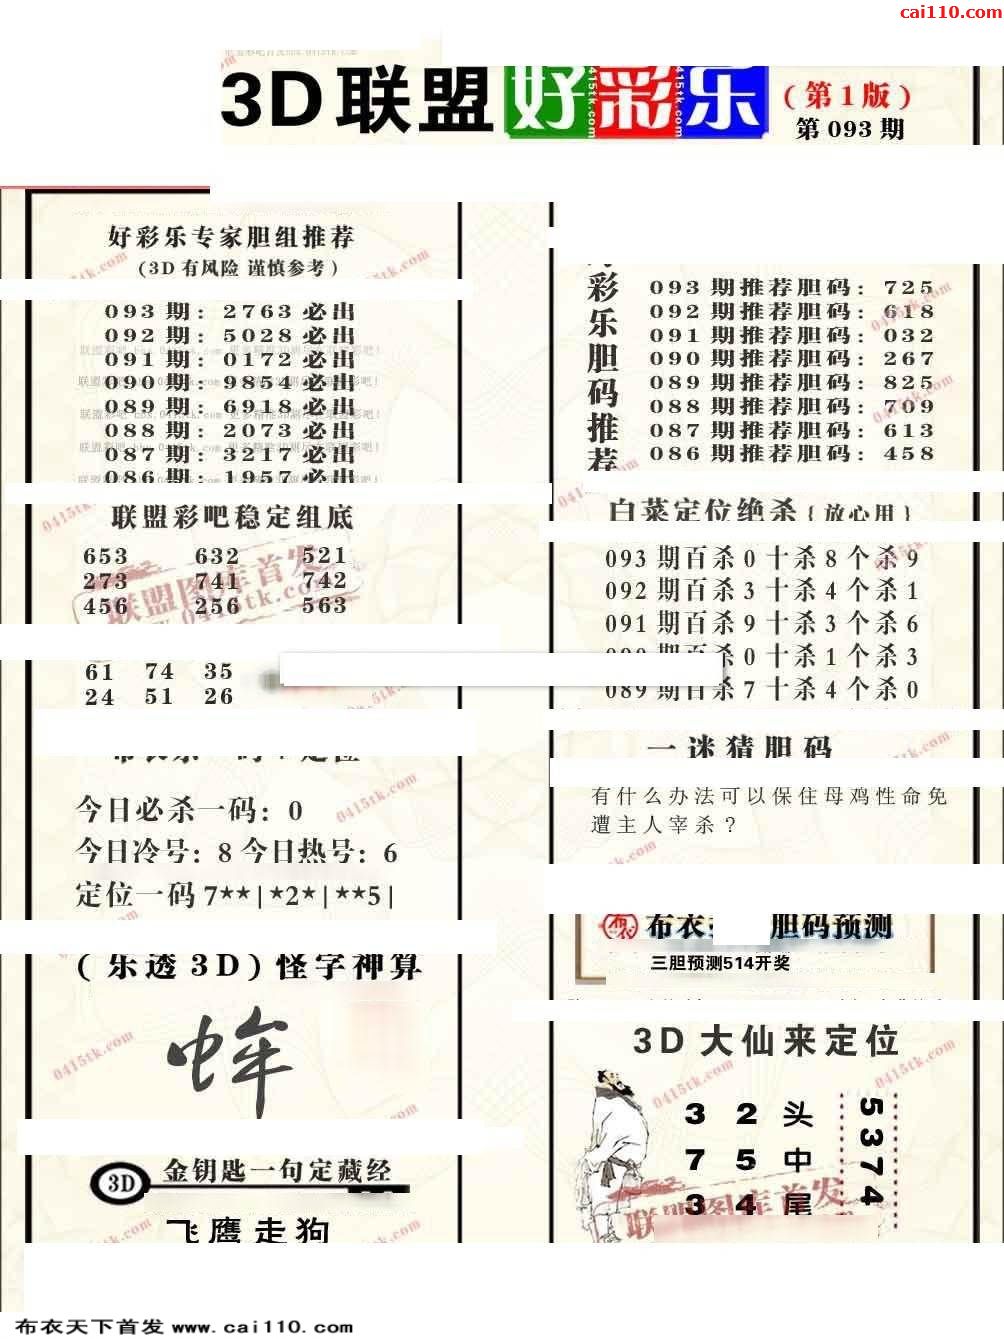 cai110.com
3D联盟好彩乐
(第1版)
第093期
好彩乐专家胆组推荐
(3D有风险 谨慎参考)
093期: 2763必出
092期: 5028必出
091期: 0172必出
090期: 9854必出
089期: 6918必出
088期: 2073必出
087期: 3217必出
086期: 1957必出
联盟彩吧稳定组底
653 632 521
273 741 742
456 256 563
61 74 35
24 51 26
今日必杀一码: 0
今日冷号: 8 今日热号: 6
定位一码 7**|*2*|**5|
(乐透3D)怪字神算
3D
金钥匙一句定藏经
飞鹰走狗
彩乐胆码推荐
093期推荐胆码: 725
092期推荐胆码: 618
091期推荐胆码: 032
090期推荐胆码: 267
089期推荐胆码: 825
088期推荐胆码: 709
087期推荐胆码: 613
086期推荐胆码: 458
白菜定位绝杀{放心用}
093期百杀0十杀8个杀9
092期百杀3十杀4个杀1
091期百杀9十杀3个杀6
杀0十杀1个杀3
089期百杀7十杀4个杀0
一迷猜胆码
有什么办法可以保住母鸡性命免
遭主人宰杀?
布衣 胆码预测
三胆预测514开奖
3D大仙来定位
3 2 头
7 5 中
3 4 尾
5374
联盟图库首发
0415tk.com
布衣天下首发 www.cai110.com